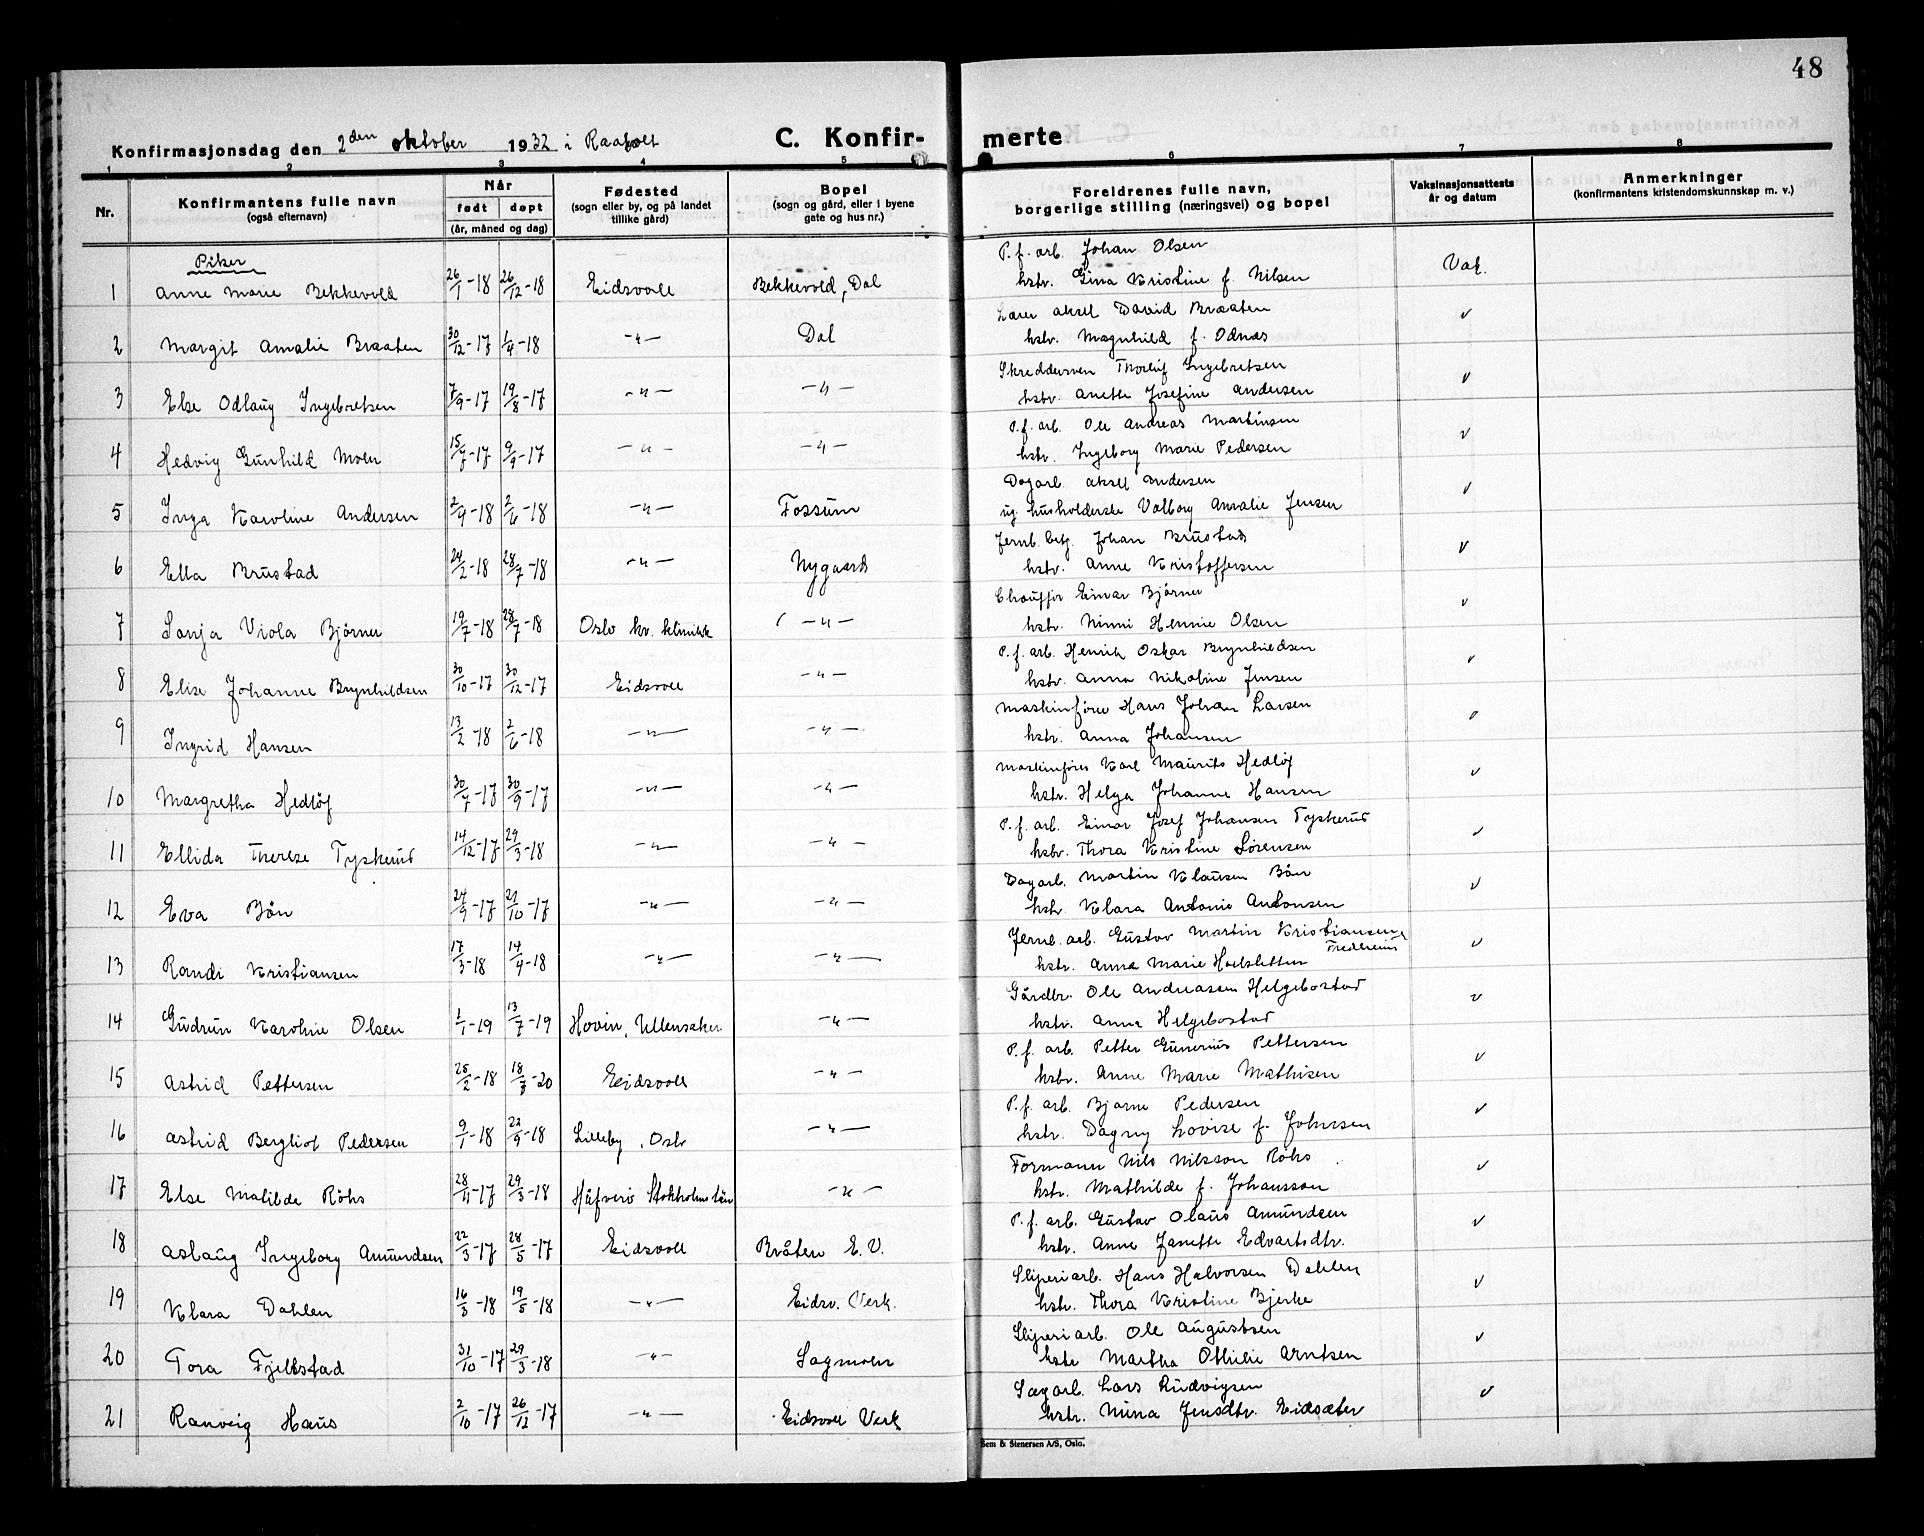 48
Konfirmasjonsdag den 2den oktober 1932 i Raaholt C. Konfir- merte
1 2 3 4 5 6 7 8
Nr. Konfirmantens fulle navn (også efternavn) Når født døpt (år, måned og dag) Fødested (sogn eller by, og på landet tillike gård) Bopel (sogn og gård, eller i byene gate og hus nr.) Foreldrenes fulle navn, borgerlige stilling (næringsvei) og bopel Vaksinasjonsattests år og datum Anmerkninger (konfirmantens kristendomskunnskap m. v.)
Piker
P. f. arb. Johan Olsen
1 Anne Marie Bekkevold 26/1-18 26/12-18 Eidsvoll Bekkevold, Dal hstr. Gina Kristine f. Nilsen Vak.
Lærer Aksel David Braaten
2 Margit Amalie Braaten 30/12-17 1/4-18 -"- Dal hstr. Magnhild f. Odnæs v
Skreddersven Thorleif Ingebretsen
3 Else Odlaug Ingebretsen 7/9-17 19/8-17 -"- -"- hstr. Anette Josefine Andersen v
P. f. arb. Ole Andreas Martinsen
4 Hedvig Gunhild Moen 15/7-17 9/9-17 -"- -"- hstr. Ingeborg Marie Pedersen v
Dagarb. Aksel Andersen
5 Inga Karoline Andersen 2/9-18 2/6-18 -"- Fossum ug. husholderske Valborg Amalie Jensen v
Jernb. betj. Johan Brustad
6 Ella Brustad 24/2-18 28/7-18 -"- Nygaard hstr. Anne Kristoffersen v
Chauffør Einar Bjørner
7 Sonja Viola Bjørner 19/7-18 28/7-18 Oslo kv. klinikk -"- hstr. Ninni Hennie Olsen v
P. f. arb. Henrik Oskar Brynhildsen
8 Elise Johanne Brynhildsen 30/10-17 30/12-17 Eidsvoll -"- hstr. Anna Nikoline Jensen v
Maskinfører Hans Johan Larsen
9 Ingrid Hansen 13/2-18 2/6-18 -"- -"- hstr. Anna Johansen v
Maskinfører Karl Maurits Hedlöf
10 Margretha Hedlöf 30/7-17 30/9-17 -"- -"- hstr. Helga Johanne Hansen v
P. f. arb. Einar Josef Johansen Tyskerud
11 Ellida Therese Tyskerud 14/12-17 29/3-18 -"- -"- hstr. Thora Kristine Sørensen v
Dagarb. Martin Klausen Bøn
12 Eva Bøn 24/9-17 21/10-17 -"- -"- hstr. Klara Antonie Antonsen v
Jernb. arb. Gustav Martin Kristiansen
13 Randi Kristiansen 17/3-18 14/4-18 -"- -"- hstr. Anna Marie Holsletten v
Gårdbr. Ole Andreasen Helgebostad
14 Gudrun Karoline Olsen 1/1-19 13/7-19 Hovin, Ullensaker -"- hstr. Anna Helgebostad v
P. f. arb. Petter Gunerius Pettersen
15 Astrid Pettersen 25/2-18 18/3-20 Eidsvoll -"- hstr. Anne Marie Mathisen v
P. f. arb. Bjarne Pedersen
16 Astrid Bergliot Pedersen 9/1-18 22/9-18 Lilleby, Oslo -"- hstr. Dagny Lovise f. Johnsen v
Formann Nils Nilsson Röhs
17 Else Matilde Röhs 28/11-17 29/3-18 Häfverö Stokholms län -"- hstr. Mathilde f. Johansson v
P. f. arb. Gustav Olaus Amundsen
18 Aslaug Ingeborg Amundsen 22/3-17 28/5-17 Eidsvoll Bråten E. V. hstr. Anne Janette Edvartsdtr. v
Sliperiarb. Hans Halvorsen Dahlen
19 Klara Dahlen 16/3-18 19/5-18 -"- Eidsv. Verk. hstr. Thora Kristine Bjerke v
Sliperiarb. Ole Augustsen
20 Tora Fjellstad 31/10-17 29/3-18 -"- Sagmoen hstr Martha Othilie Arntsen v
Sagarb. Lars Ludvigsen
21 Ranveig Haus 2/10-17 26/12-17 -"- Eidsvoll Verk hstr. Nina Jensdtr. Eidsæter v
Sem & Stenersen A/S, Oslo.